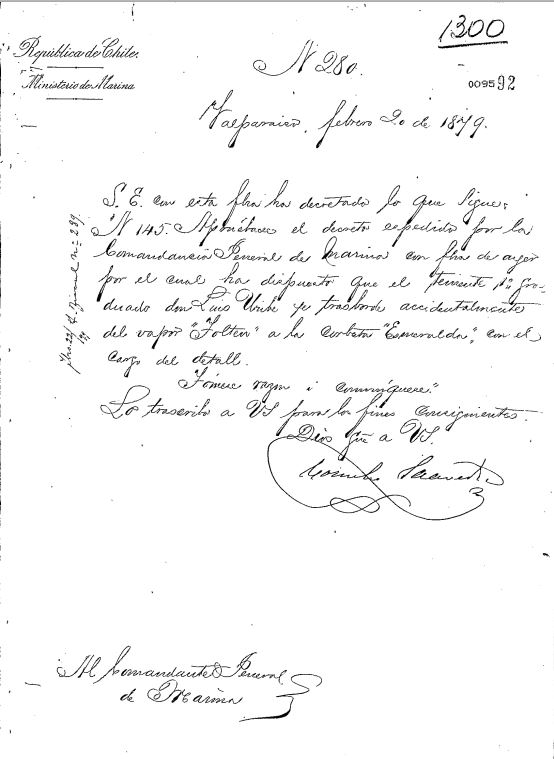 1300
República de Chile.
Ministerio de Marina
N 280.
009592
Valparaiso, febrero 20 de 1879.
S. E. con esta fha ha decretado lo que sigue:
"N 145. Apruébase el decreto espedido por la
Comandancia Jeneral de Marina con fha de ayer
por el cual ha dispuesto que el teniente 1º gra-
duado don Luis Uribe se trasborde accidentalmente
del vapor "Tolten" a la corbeta "Esmeralda", con el
cargo del detall.
Tómese razon i comuníquese."
Lo trascribo a VS para los fines consiguientes.
Dios gue a VS.
Cornelio Saavedra
Al Comandante Jeneral
de Marina